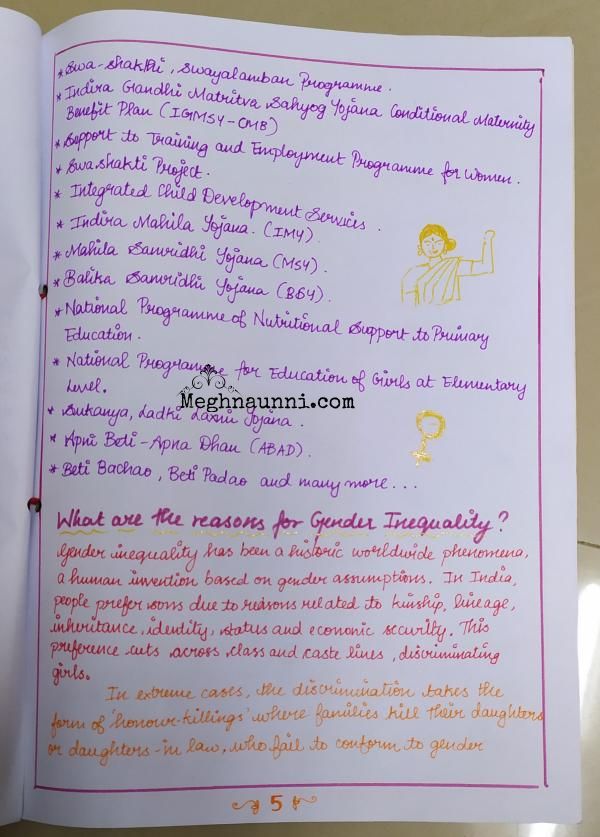 * Swa-shakthi, Swayalamban Programme.
* Indira Gandhi Matritva Sahyog Yojana Conditional Maternity
Benefit Plan (IGMSY-CMB)
* Support to Training and Employment Programme for Women.
* Swashakti Project.
* Integrated Child Development Services.
* Indira Mahila Yojana. (IMY).
* Mahila Samridhi Yojana (MSY).
* Balika Samridhi Yojana (BSY).
* National Programme of Nutritional Support to Primary
Education.
* National Programme for Education of Girls at Elementary
Level.
Meghnaunni.com
* Sukanya, Ladhi Laxmi Yojana.
* Apni Beti - Apna Dhan (ABAD).
* Beti Bachao, Beti Padao and many more...
What are the reasons for Gender Inequality?
Gender inequality has been a historic worldwide phenomena,
a human invention based on gender assumptions. In India,
people prefer sons due to reasons related to kinship, lineage,
inheritance, identity, status and economic security. This
preference cuts across class and caste lines, discriminating
girls.
In extreme cases, the discrimination takes the
form of 'honour-killings' where families kill their daughters
or daughters-in law, who fail to conform to gender
5